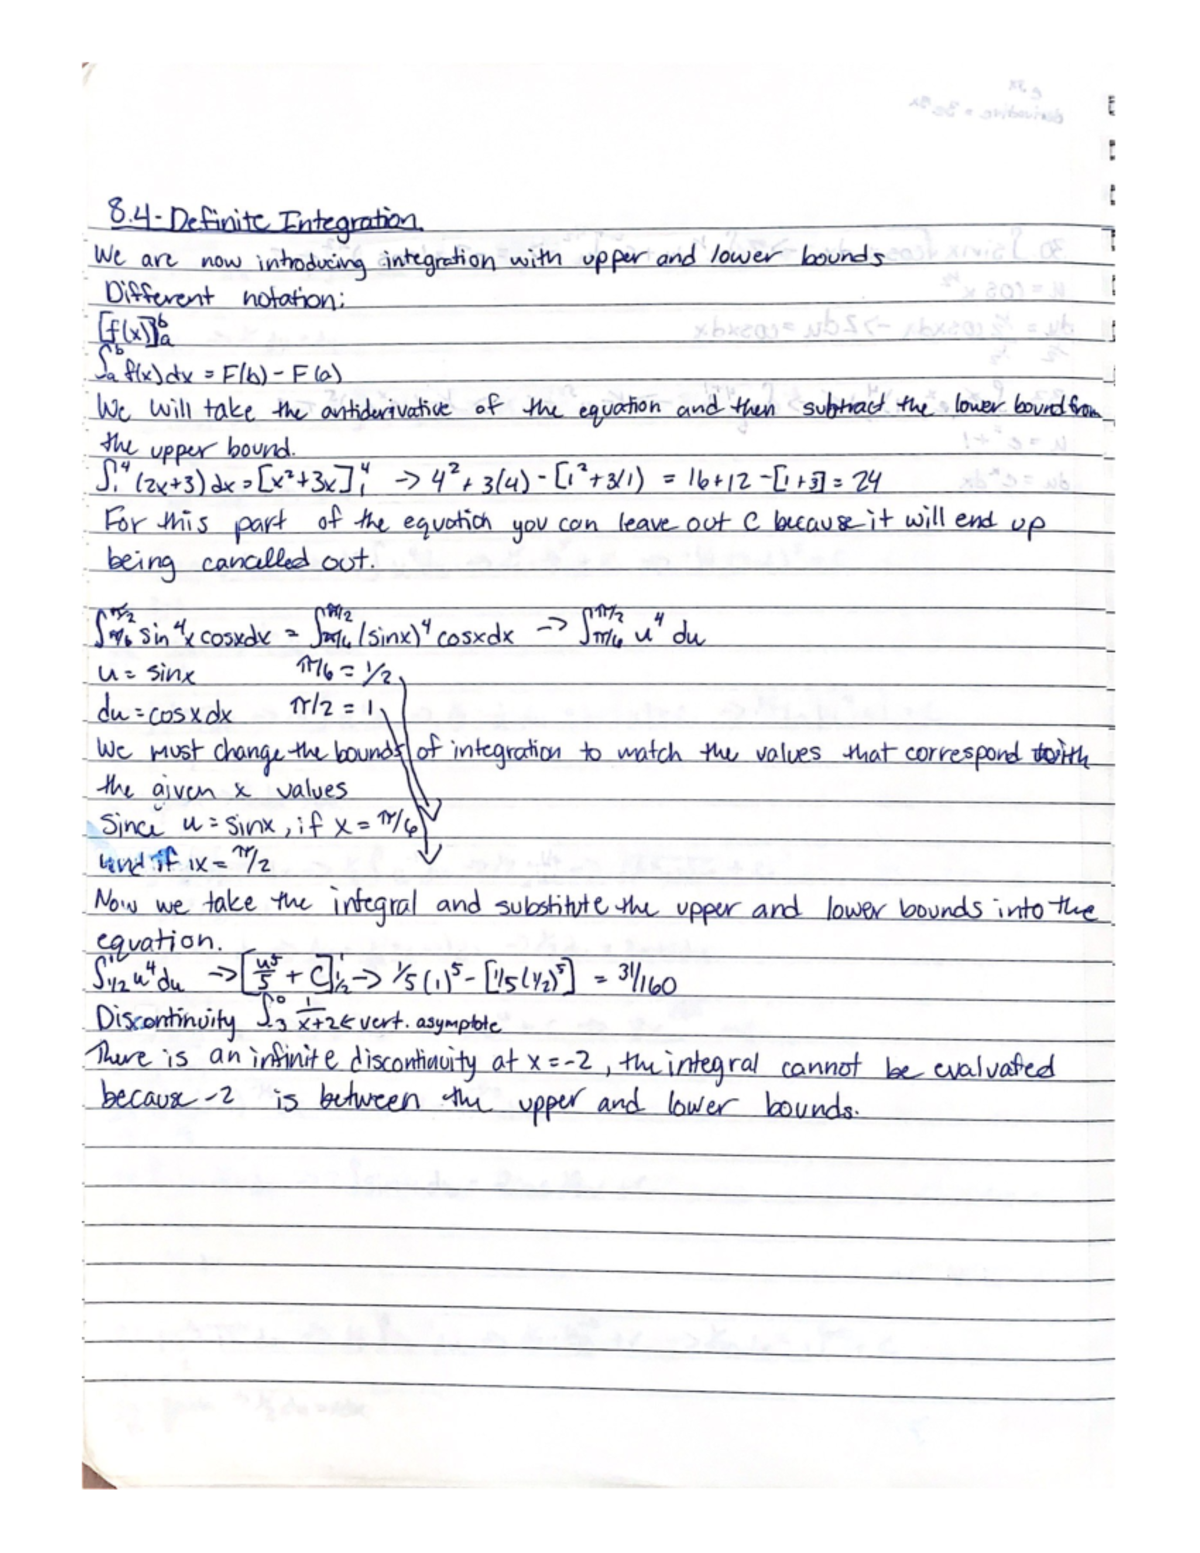 8.4 - Definite Integration
We are now introducing integration with upper and lower bounds
Different notation:
[f(x)]ᵇₐ
∫ᵇₐ f(x)dx = F(b) - F(a)
We will take the antiderivative of the equation and then subtract the lower bound from
the upper bound.
∫₁⁴ (2x+3)dx = [x²+3x]₁⁴ → 4² + 3(4) - [1² + 3(1) = 16+12 - [1+3] = 24
For this part of the equation you can leave out C because it will end up
being cancelled out.
∫ sin⁴x cosxdx = ∫ (sinx)⁴ cosxdx → ∫_π/6^π/2 u⁴ du
u = sinx π/6 = 1/2
du = cosxdx π/2 = 1
We must change the bounds of integration to match the values that correspond with
the given x values
Since u = sinx, if x = π/6
and if x = π/2
Now we take the integral and substitute the upper and lower bounds into the
equation.
∫_1/2^1 u⁴du → [u⁵/5 + C]_1/2^1 → 1/5(1)⁵ - [1/5(1/2)⁵] = 31/160
Discontinuity ∫₋₃⁰ 1/x+2 ← vert. asymptote
There is an infinite discontinuity at x = -2, the integral cannot be evaluated
because -2 is between the upper and lower bounds.